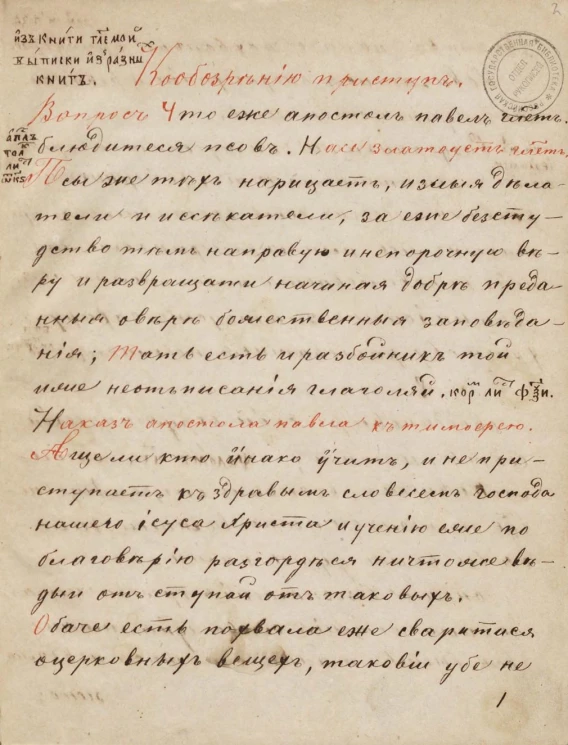 изъ книги глемой
выписки изъ разны
книгъ.
2
Кообозрѣнію приступъ.
Вопросъ Что еже апостолъ павелъ глетъ.
блюдитеся псовъ. Наси златоустъ глетъ.
апль
тол
ли
Псы же тѣхъ нарицаетъ, измыя дѣла-
тели и иссѣкатели, за еже безсту-
дство тѣмъ направую инепорочную вѣ-
ру и развращати начиная добрѣ преда-
нныя овѣрѣ божественныя заповѣда-
нія; тать есть и разбойникъ той
иже неотъписанія глаголяй. кор ли
Наказъ апостола павла къ тимоѳею.
Аще ли кто инако учитъ, и не при-
ступаетъ къ здравымъ словесем господа
нашего ісуса христа и ученію еже по
благовѣрію разгордѣся ничтоже вѣ-
дыи отъступай отъ таковыхъ.
Обаче есть похвала еже сваритися
оцерковныхъ вещехъ, таковіи убе не
1